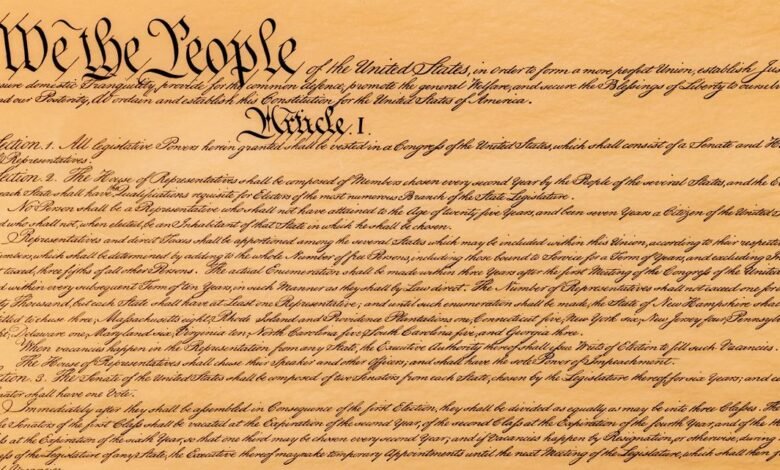 We the People
of the United States, in order to form a more perfect Union, establish
domestic Tranquility, provide for the common defence, promote the general Welfare, and secure the Blessings of Liberty to
our Posterity, do ordain and establish this Constitution for the United States of America.
Article. I.
Section 1. All legislative Powers herein granted shall be vested in a Congress of the United States, which shall consist of a Senate and
Representatives
Section 2. The House of Representatives shall be composed of Members chosen every second Year by the People of the several States, and the
each State shall have Qualifications requisite for Electors of the most numerous Branch of the State Legislature.
No Person shall be a Representative who shall not have attained to the Age of twenty five Years, and been seven Years a Citizen of the United
who shall not, when elected, be an Inhabitant of that State in which he shall be chosen.
Representatives and direct Taxes shall be apportioned among the several States which may be included within this Union, according to their
which shall be determined by adding to the whole Number of free Persons, including those bound to Service for a Term of Years, and excluding
taxed, three fifths of all other Persons. The actual Enumeration shall be made within three Years after the first Meeting of the Congress of the
within every subsequent Term of ten Years, in such Manner as they shall by Law direct. The Number of Representatives shall not exceed one for
Thousand, but each State shall have at Least one Representative; and until such enumeration shall be made, the State of New Hampshire shall
to chuse three, Massachusetts eight, Rhode Island and Providence Plantations one, Connecticut five, New York six, New Jersey four,
Delaware one, Maryland six, Virginia ten, North Carolina five, South Carolina five, and Georgia three.
When vacancies happen in the Representation from any State, the Executive Authority thereof shall issue Writs of Election to fill such Vacancies.
The House of Representatives shall chuse their Speaker and other Officers; and shall have the sole Power of Impeachment.
Section. 3. The Senate of the United States shall be composed of two Senators from each State, chosen by the Legislature thereof, for six Years; and
shall have one Vote.
Immediately after they shall be assembled in Consequence of the first Election, they shall be divided as equally as may be into three Classes.
Senators of the first Class shall be vacated at the Expiration of the second Year, of the second Class at the Expiration of the fourth Year, and of the
at the Expiration of the sixth Year, so that one third may be chosen every second Year; and if Vacancies happen by Resignation, or otherwise, during
of the Legislature of any State, the Executive thereof may make temporary Appointments until the next Meeting of the Legislature, which shall then